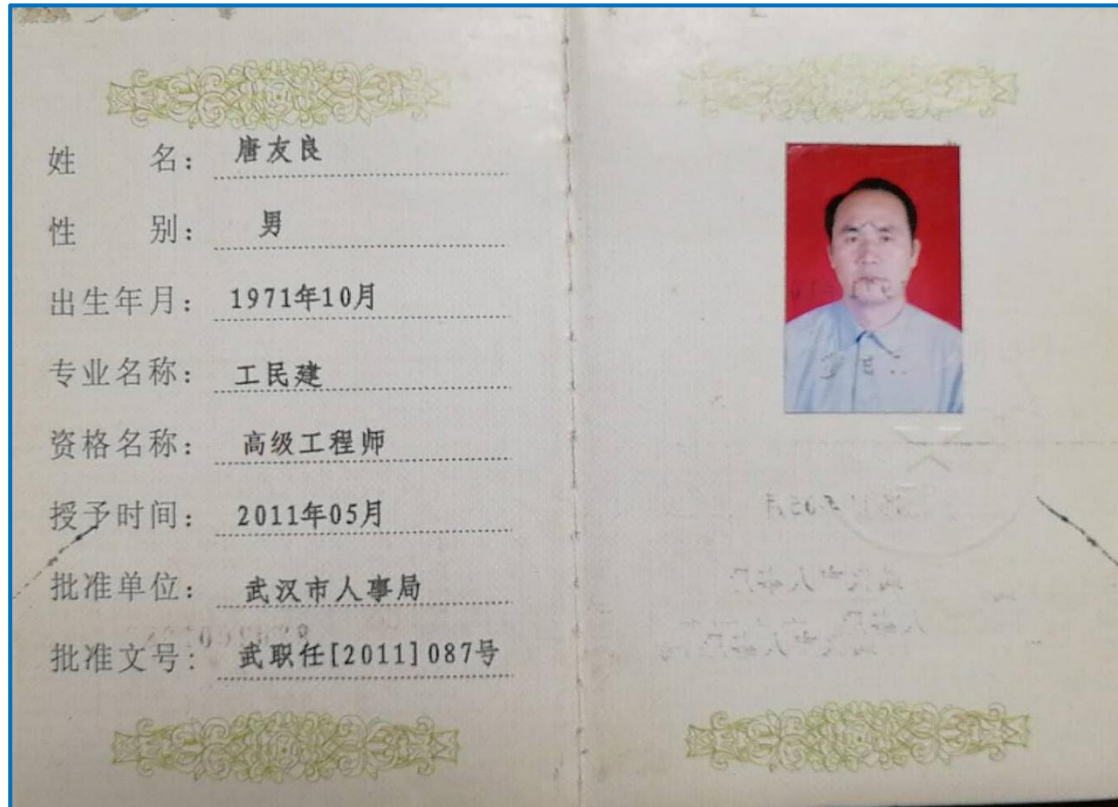 姓名：唐友良
性别：男
出生年月：1971年10月
专业名称：工民建
资格名称：高级工程师
授予时间：2011年05月
批准单位：武汉市人事局
批准文号：武职任[2011]087号